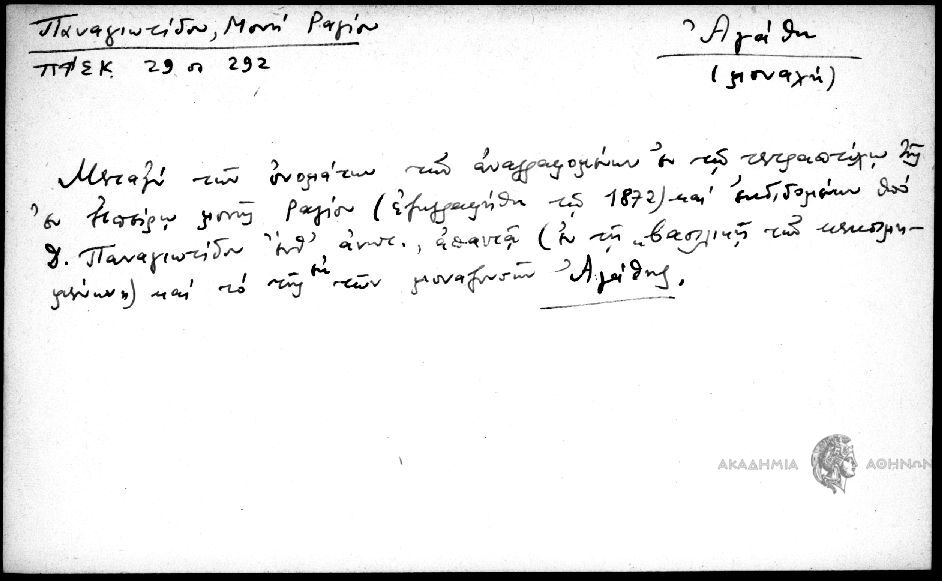 Παναγιωτίδου, Μονή Ραγίου
ΠΗΣΚ 29 σ 292
Ἀγάθη
(μοναχή)
Μεταξὺ τῶν ὀνομάτων τῶν ἀναγραφομένων ἐν τῷ τετραπτύχῳ τῆς
ἐν Ἠπείρῳ μονῆς Ραγίου (ἐφιγραφήθη τῷ 1872) καὶ ἐκδιδομένων ὑπό
Δ. Παναγιωτίδου ἐνθ' ἀνωτ., ἀπαντᾷ (ἐν τῇ "βασιλικῇ τῶν κεκοιμη-
μένων") καὶ τὸ τῆς ἐκ τῶν μοναζουσῶν Ἀγάθης.
ΑΚΑΔΗΜΙΑ ΑΘΗΝΩΝ